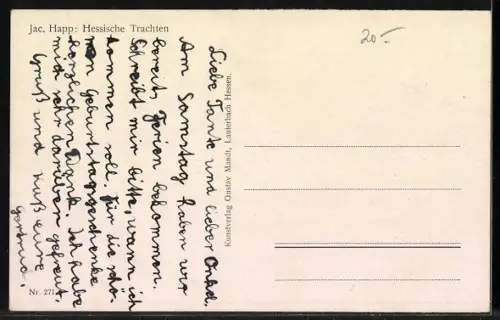 Jac. Happ: Hessische Trachten
20.-
Liebe Tante und lieber Onkel.
Am Samstag haben wir
bereits Ferien bekommen.
Schreibt mir bitte, wann ich
kommen soll. Für die schö-
nen Geburtstagsgeschenke
herzlichen Dank. Ich habe
mich sehr darüber gefreut.
Gruß und Kuß eure
Gertrud.
Kunstverlag Gustav Mandt, Lauterbach Hessen.
Nr. 271